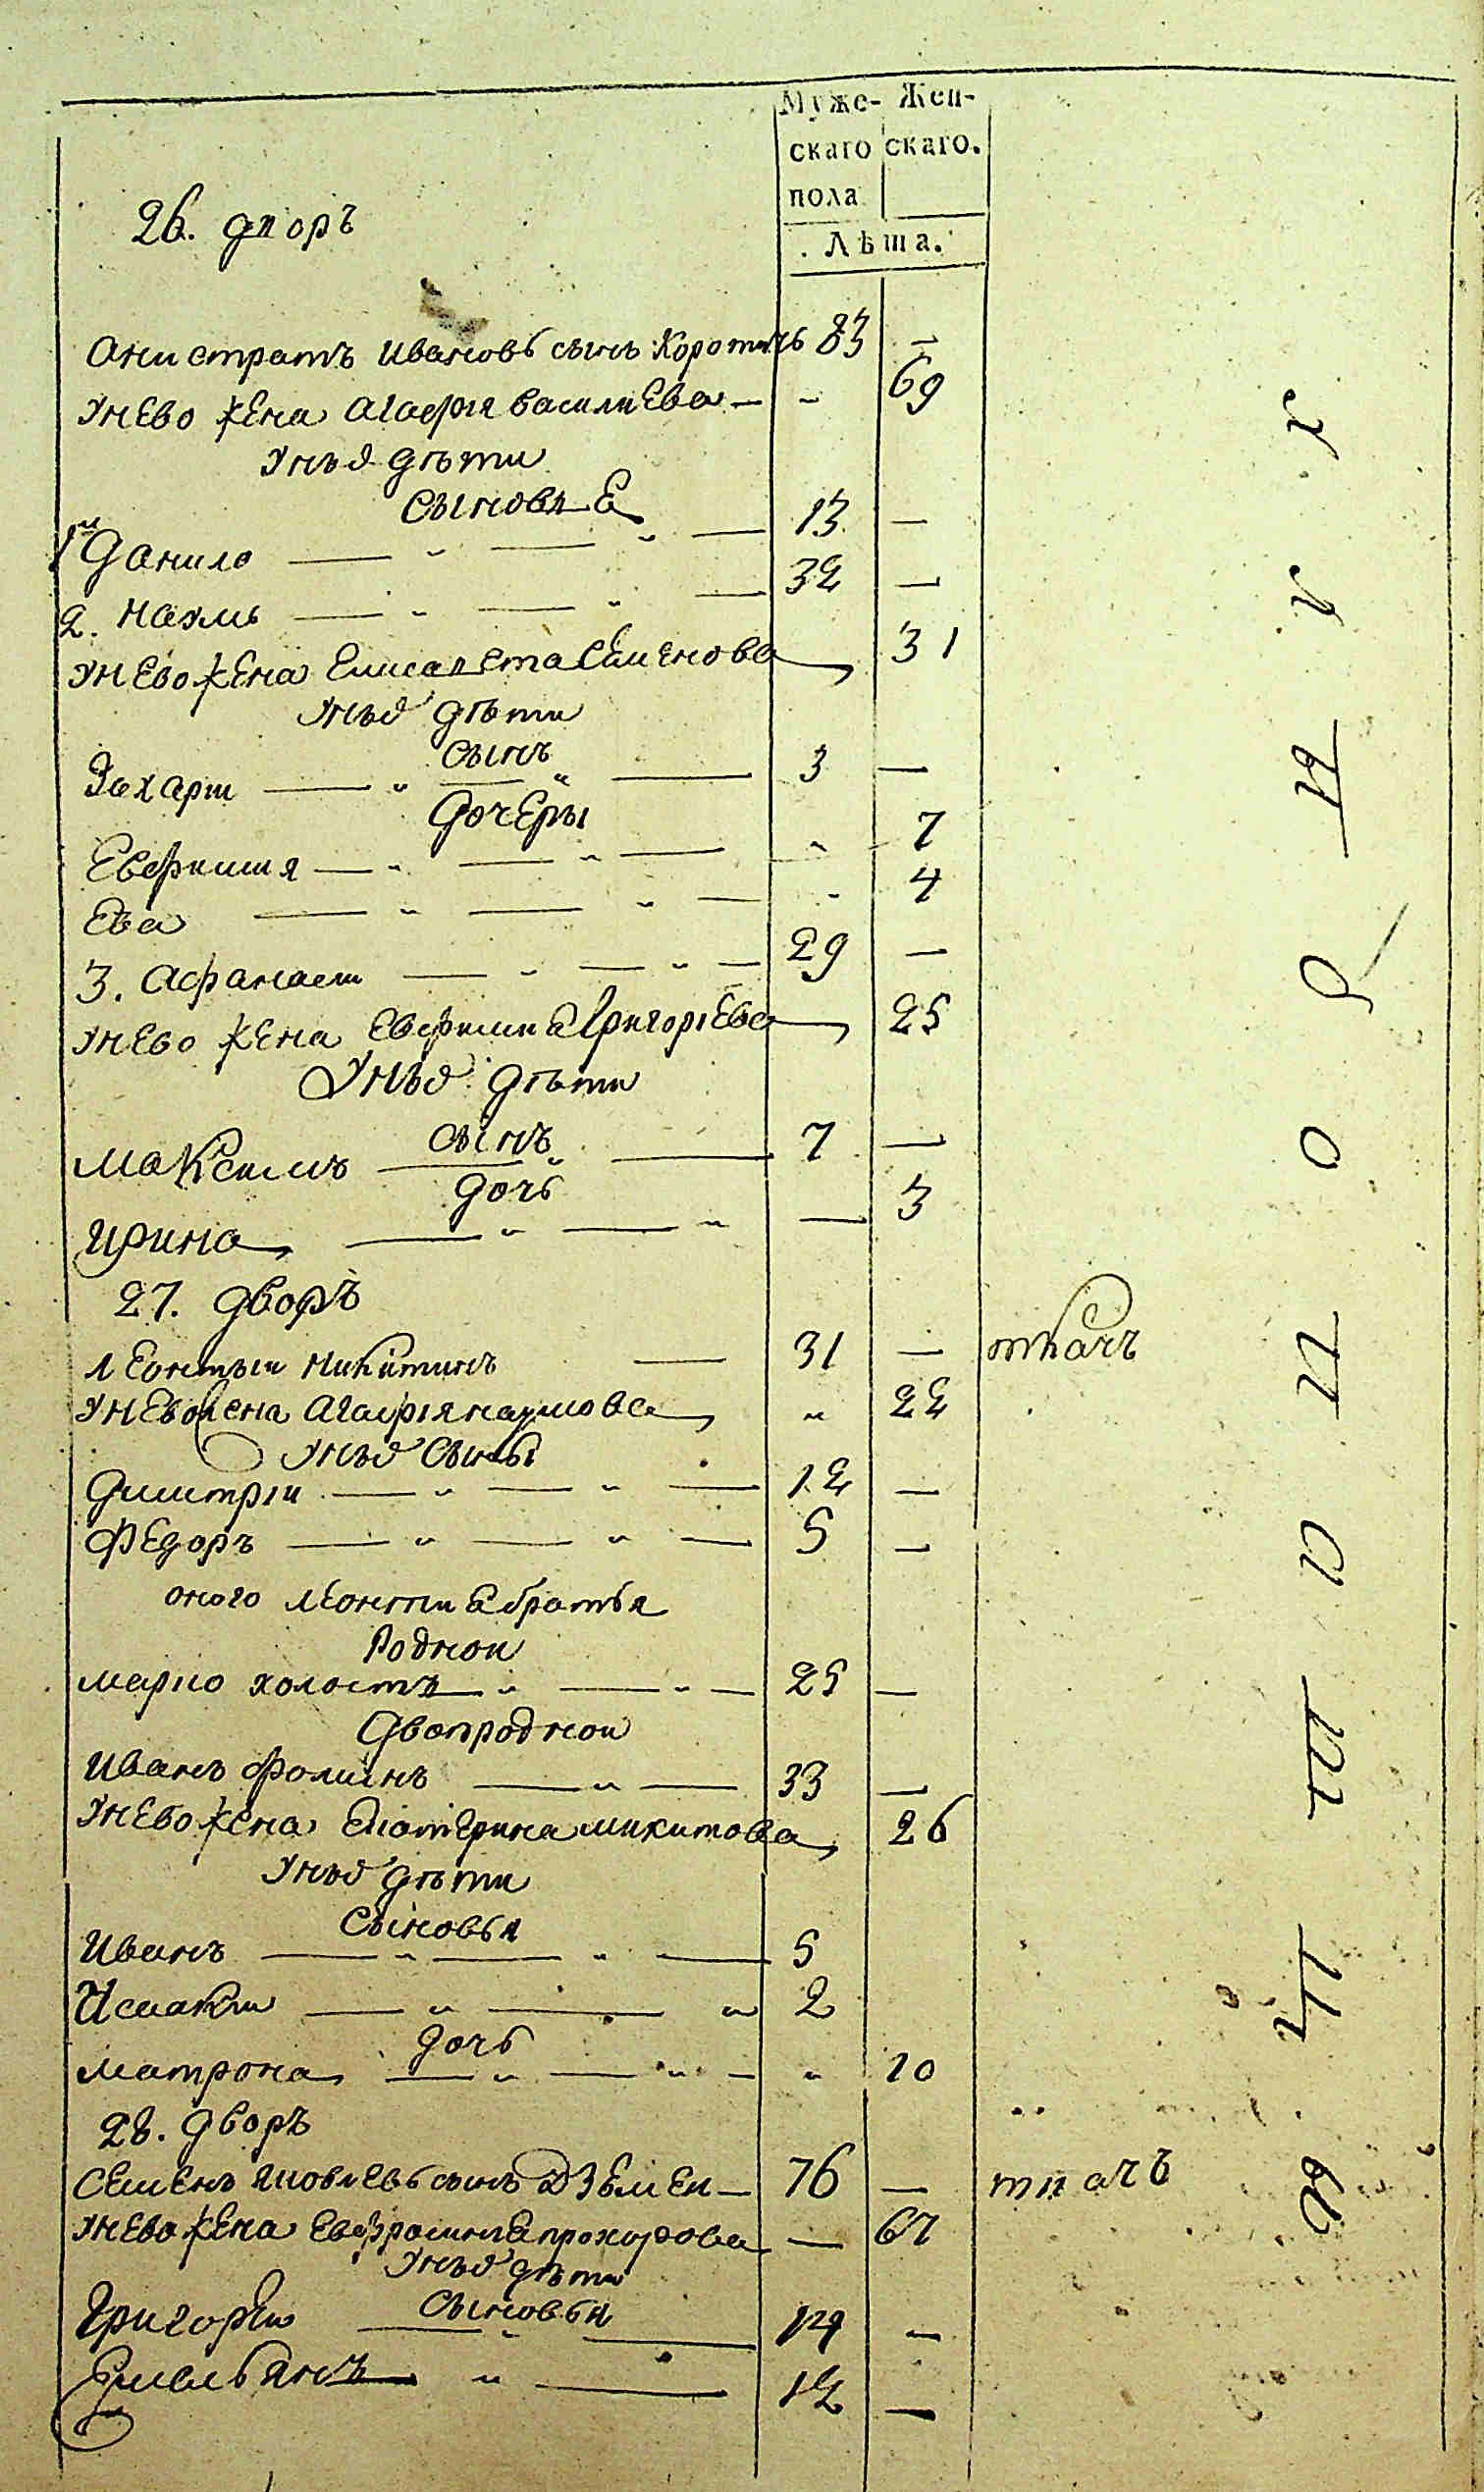 Муже- Жен-
скаго скаго.
пола
Лѣта.
26. дворъ
Онистратъ Ивановъ сынъ Коротичь 83 —
Унево жена Агафiя василиЕва — „ 69
Унъхъ дѣти
Сыновья
1й Данило — „ — „ — 13 —
2. Наумъ — „ — „ — 32 —
Унево жена Елисавета Семенова 31
Унъхъ дѣти
Сынъ
Захари — „ — „ — 3 —
Дочеры
Евфимия — „ — „ — „ 7
Ева — „ — „ — „ 4
3. Афанасеи — „ — „ — 29 —
Унево жена Евфимиа Григорiева 25
Унъхъ дѣти
Сынъ
Максимъ — „ — 7 —
Дочь
Ирина — „ — „ — 3
27. дворъ
Леонтъи Никитинъ — 31 — ткачъ
Унево жена Агафiя наумова „ 22
Унъхъ Сыны
Димитрiи — „ — „ — 12 —
Федоръ — „ — „ — 5 —
оного Леонтиа братья
Родной
марко холостъ — „ — „ — 25 —
Двоюродной
Иванъ Фоминъ — „ — 33 —
Унево жена Екатерина микитова 26
Унъхъ дѣти
Сыновья
Иванъ — „ — „ — 5
Исаакии — „ — „ 2
Дочь
Матрона — „ — „ — „ 10
28. Дворъ
Семенъ Яковлевъ сынъ — 76 — ткачъ
Унево жена Евфросиниа прохорова — 67
Унъхъ дѣти
Сыновья
Григореи — „ — 14 —
Емельянъ — „ — 12 —